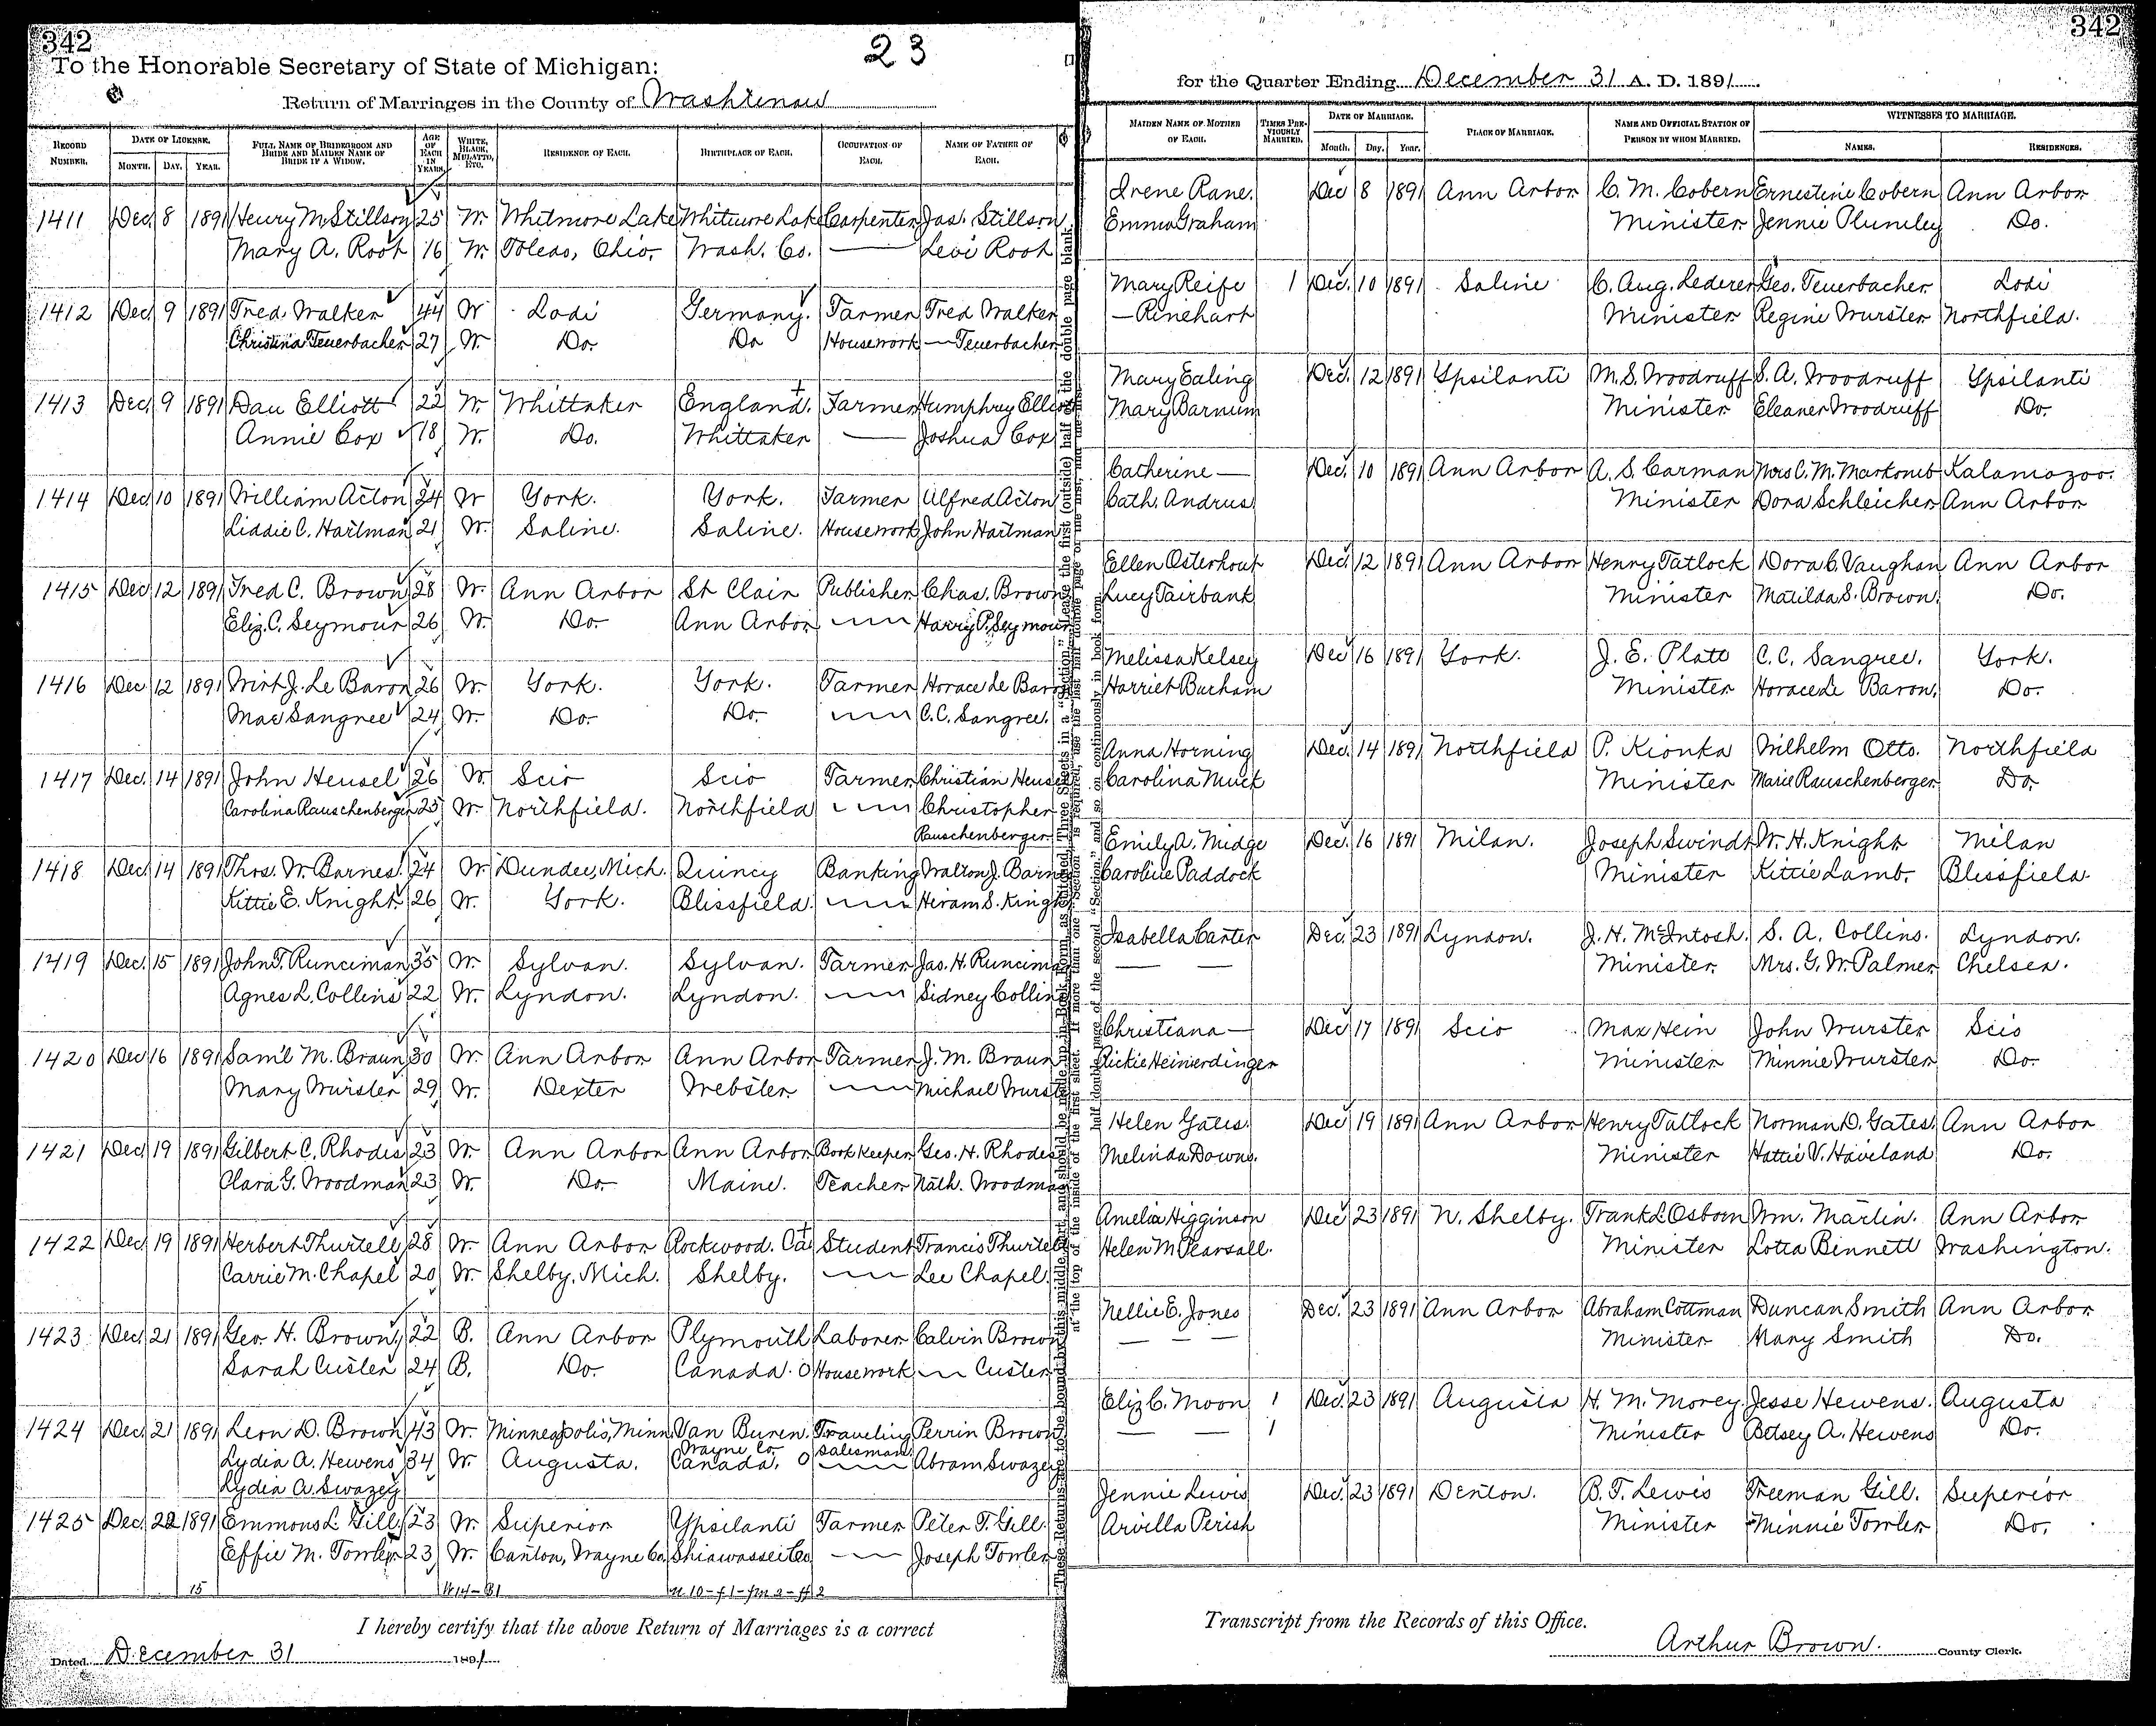 342
23
342
To the Honorable Secretary of State of Michigan:
Return of Marriages in the County of Washtenaw
for the Quarter Ending December 31 A. D. 1891
RECORD NUMBER. DATE OF LICENSE. MONTH. DAY. YEAR. FULL NAME OF BRIDEGROOM AND BRIDE AND MAIDEN NAME OF BRIDE IF A WIDOW. AGE OF EACH IN YEARS. WHITE, BLACK, MULATTO, ETC. RESIDENCE OF EACH. BIRTHPLACE OF EACH. OCCUPATION OF EACH. NAME OF FATHER OF EACH.
MAIDEN NAME OF MOTHER OF EACH. TIMES PREVIOUSLY MARRIED. DATE OF MARRIAGE. Month. Day. Year. PLACE OF MARRIAGE. NAME AND OFFICIAL STATION OF PERSON BY WHOM MARRIED. WITNESSES TO MARRIAGE. NAMES. RESIDENCES.
1411 Dec. 8 1891 Henry M. Stillson 25 W. Whitmore Lake Whitmore Lake Carpenter Jas. Stillson Irene Rane. Dec 8 1891 Ann Arbor C. M. Cobern Ernestine Cobern Ann Arbor
Mary A. Root 16 W. Toledo, Ohio. Wash. Co. — Levi Root Emma Graham Minister Jennie Plumley Do.
1412 Dec. 9 1891 Fred Walker 44 W Lodi Germany. Farmer Fred Walker Mary Reife 1 Dec. 10 1891 Saline C. Aug. Lederer Geo. Feuerbacher Lodi
Christina Feuerbacher 27 W. Do. Do Housework — Feuerbacher — Rinehart Minister Regine Wurster Northfield.
1413 Dec. 9 1891 Dan Elliott 22 W. Whittaker England. Farmer Humphrey Elliott Mary Ealing Dec. 12 1891 Ypsilanti M. S. Woodruff S. A. Woodruff Ypsilanti
Annie Cox 18 W. Do. Whittaker — Joshua Cox Mary Barnum Minister Eleaner Woodruff Do.
1414 Dec. 10 1891 William Acton 24 W York. York. Farmer Alfred Acton Catherine — Dec. 10 1891 Ann Arbor A. S. Carman Mrs C. M. Kalamazoo.
Liddie C. Hartman 21 W. Saline. Saline. Housework John Hartman Cath. Andrus Minister Dora Schleicher Ann Arbor
1415 Dec 12 1891 Fred C. Brown 28 W. Ann Arbor St Clair Publisher Chas. Brown Ellen Osterhout Dec. 12 1891 Ann Arbor Henry Tatlock Dora C. Vaughan Ann Arbor
Eliz. C. Seymour 26 W. Do. Ann Arbor — Harry P. Seymour Lucy Fairbank Minister Matilda S. Brown. Do.
1416 Dec 12 1891 Wirt J. Le Baron 26 W. York. York. Farmer Horace Le Baron Melissa Kelsey Dec 16 1891 York. J. E. Platt C. C. Sangree. York.
Mae Sangree 24 W. Do. Do. — C. C. Sangree. Harriet Burham Minister Horace Le Baron. Do.
1417 Dec. 14 1891 John Heusel 26 W. Scio Scio Farmer Christian Heusel Anna Horning Dec. 14 1891 Northfield P. Kionka Wilhelm Otto. Northfield
Carolina Rauschenberger 25 W. Northfield. Northfield — Christopher Rauschenberger. Carolina Muck Minister Marie Rauschenberger Do.
1418 Dec. 14 1891 Thos. W. Barnes. 24 W. Dundee, Mich. Quincy Banking Walton J. Barnes Emily A. Midge Dec. 16 1891 Milan. Joseph Swindt W. H. Knight Milan
Kittie E. Knight. 26 W. York. Blissfield. — Hiram S. Kinght Caroline Paddock Minister Kittie Lamb. Blissfield.
1419 Dec. 15 1891 John T. Runciman 35 W. Sylvan. Sylvan. Farmer Jas. H. Runciman Isabella Carter Dec. 23 1891 Lyndon. J. H. McIntosh. S. A. Collins. Lyndon.
Agnes L. Collins 22 W. Lyndon. Lyndon. — Sidney Collins — — Minister Mrs. G. W. Palmer Chelsea.
1420 Dec 16 1891 Sam'l M. Braun 30 W. Ann Arbor Ann Arbor Farmer J. M. Braun Christiana — Dec 17 1891 Scio Max Hein John Wurster Scio
Mary Wurster 29 W. Dexter Webster — Michael Wurster Rickie Heinierdinger Minister Minnie Wurster Do.
1421 Dec. 19 1891 Gilbert C. Rhodes 23 W. Ann Arbor Ann Arbor Bookkeeper Geo. H. Rhodes Helen Gates. Dec 19 1891 Ann Arbor Henry Tatlock Norman D. Gates. Ann Arbor
Clara G. Woodman 23 W. Do. Maine. Teacher Nath. Woodman Melinda Downs. Minister Hattie V. Haviland Do.
1422 Dec. 19 1891 Herbert Thurtell 28 W. Ann Arbor Rockwood. Ca Student Francis Thurtell Amelia Higginson Dec 23 1891 N. Shelby. Frank L Osborn Wm. Martin. Ann Arbor
Carrie M. Chapel 20 W. Shelby, Mich. Shelby. — Lee Chapel. Helen M Pearsall. Minister Lotta Bennett Washington.
1423 Dec. 21 1891 Geo. H. Brown 22 B. Ann Arbor Plymouth Laborer Calvin Brown Nellie E. Jones Dec. 23 1891 Ann Arbor Abraham Cottman Duncan Smith Ann Arbor
Sarah Custer 24 B. Do. Canada. O Housework — Custer — — — Minister Mary Smith Do.
1424 Dec. 21 1891 Leon D. Brown 43 W. Minneapolis, Minn Van Buren. Wayne Co. Traveling salesman Perrin Brown Eliz C. Moon 1 Dec. 23 1891 Augusta H. M. Morey. Jesse Hewens. Augusta
Lydia A. Hewens 34 W. Augusta. Canada. O — Abram Swazey — — 1 Minister Betsey A. Hewens Do.
Lydia A. Swazey
1425 Dec. 22 1891 Emmons L Gill. 23 W. Superior Ypsilanti Farmer Peter T. Gill. Jennie Lewis Dec. 23 1891 Denton. B. F. Lewis Freeman Gill. Superior
Effie M. Fowler 23 W. Canton, Wayne Co. Shiawassee Co — Joseph Fowler Arvilla Perish Minister Minnie Fowler Do.
15 W 14 – B 1 n 10 – f 1 – fm 2 – ff 2
I hereby certify that the above Return of Marriages is a correct
Transcript from the Records of this Office.
Dated December 31 1891
Arthur Brown. County Clerk.